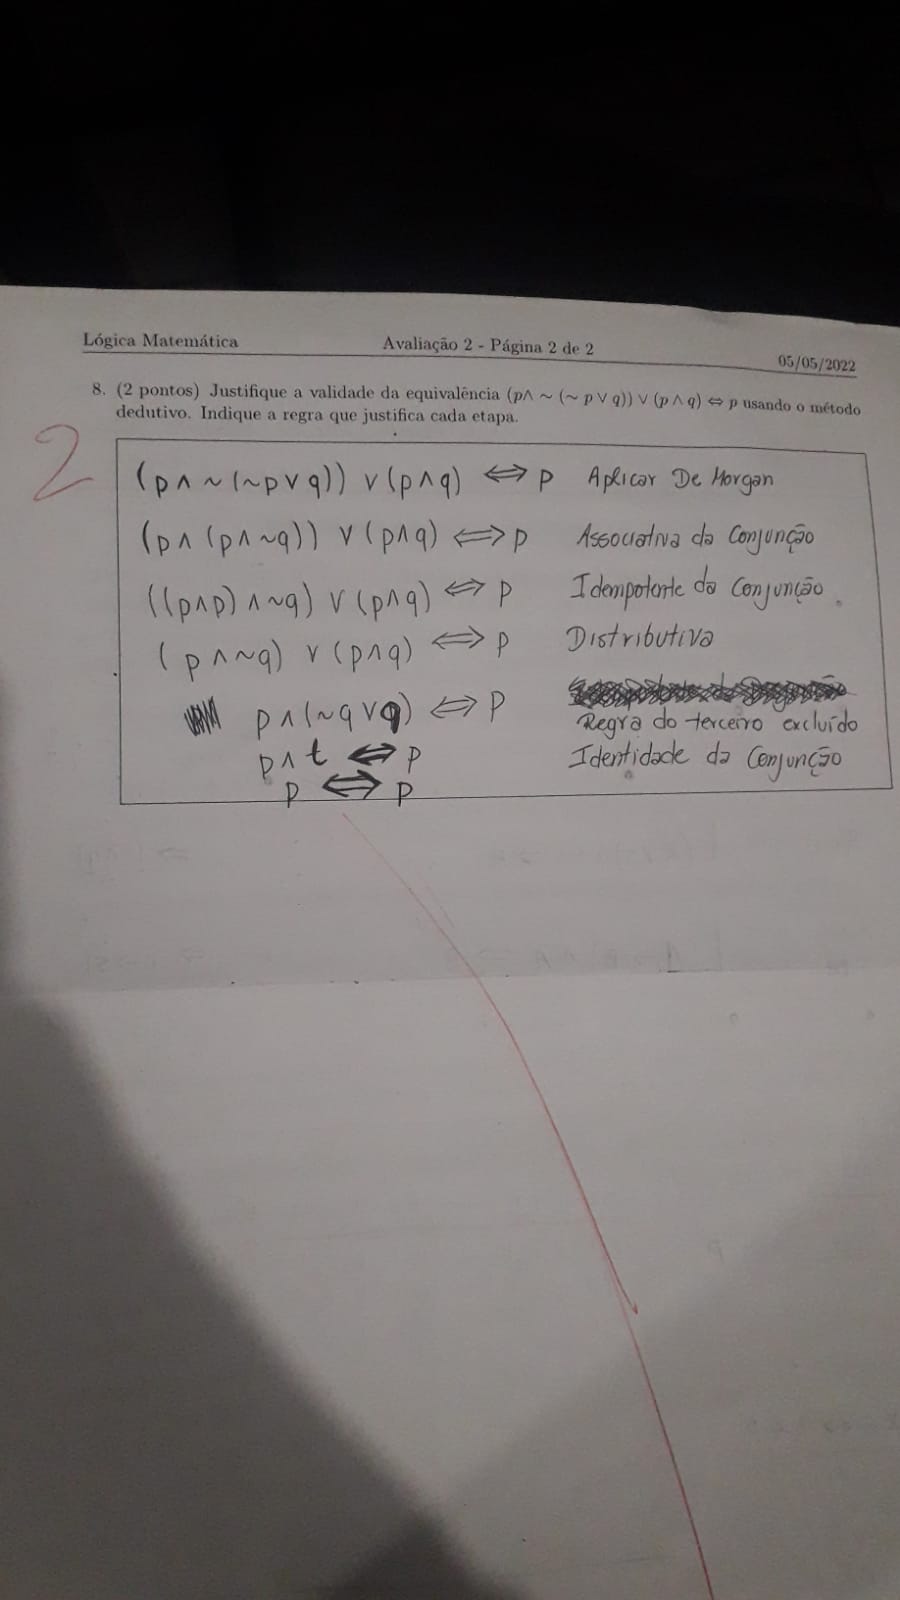 Lógica Matemática Avaliação 2 - Página 2 de 2 05/05/2022
8. (2 pontos) Justifique a validade da equivalência (p∧ ∼ (∼ p ∨ q)) ∨ (p ∧ q) ⇔ p usando o método
dedutivo. Indique a regra que justifica cada etapa.
2
(p ∧ ~(~p ∨ q)) ∨ (p ∧ q) ⇔ p Aplicar De Morgan
(p ∧ (p ∧ ~q)) ∨ (p ∧ q) ⇔ p Associativa da Conjunção
((p ∧ p) ∧ ~q) ∨ (p ∧ q) ⇔ p Idempotente da Conjunção
(p ∧ ~q) ∨ (p ∧ q) ⇔ p Distributiva
p ∧ (~q ∨ q) ⇔ p Regra do terceiro excluído
p ∧ t ⇔ p Identidade da Conjunção
p ⇔ p